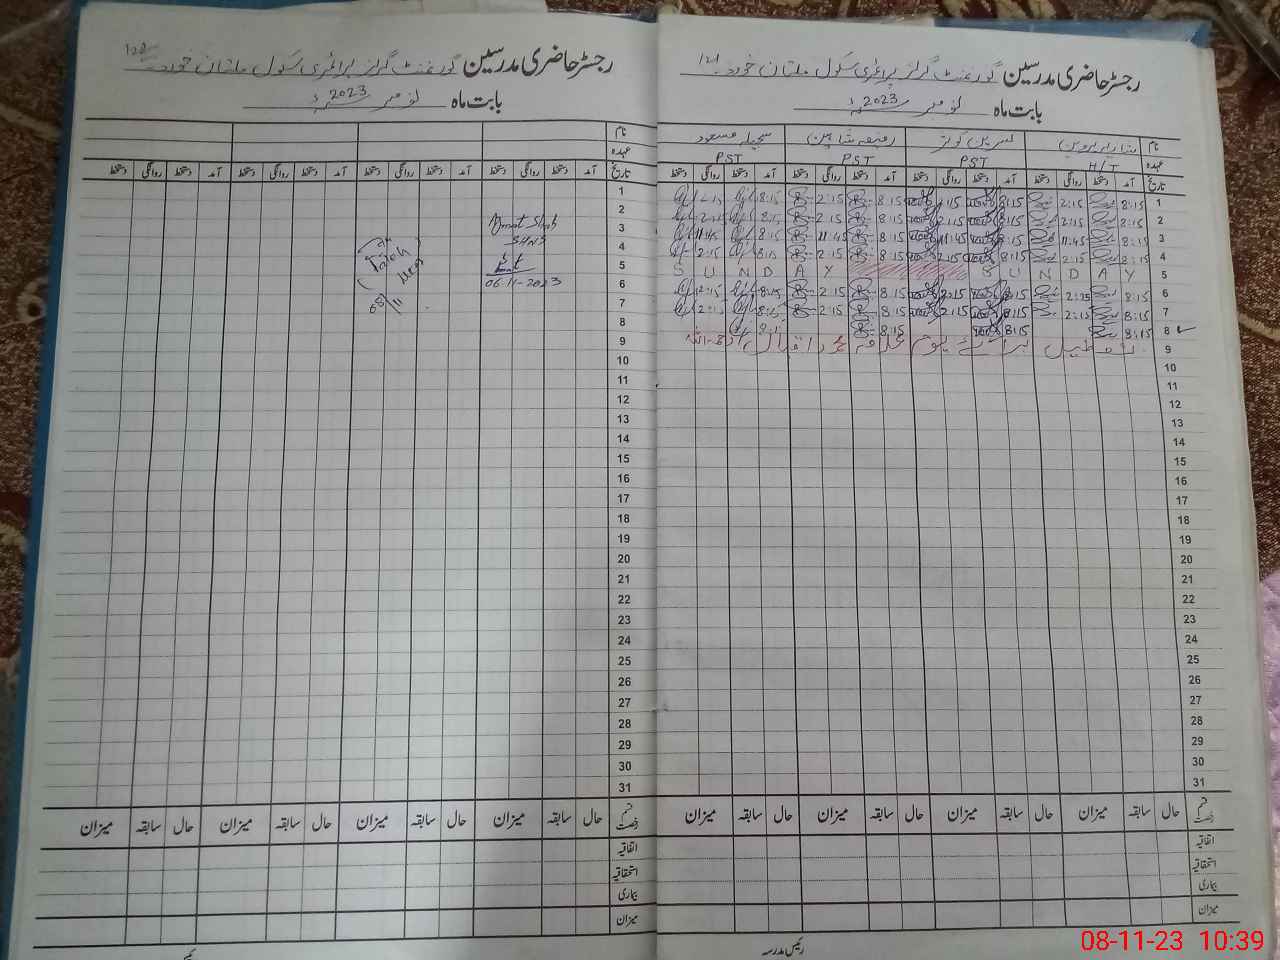 رجسٹر حاضری مدرسین گورنمنٹ گرلز پرائمری سکول ملتان خورد
بابت ماہ نومبر 2023ء
نام نسرین کوثر سجیلہ مسعود
عہدہ H/T PST PST PST
تاریخ آمد دستخط روانگی دستخط آمد دستخط روانگی دستخط آمد دستخط روانگی دستخط آمد دستخط روانگی دستخط
1 8:15 2:15 8:15 2:15 8:15 2:15 8:15 2:15
2 8:15 2:15 8:15 2:15 8:15 2:15 8:15 2:15
3 8:15 11:45 8:15 11:45 8:15 11:45 8:15 11:45
4 8:15 2:15 8:15 2:15 8:15 2:15 8:15 2:15
5 S U N D A Y S U N D A Y
6 8:15 2:15 8:15 2:15 8:15 2:15 8:15 2:15
7 8:15 2:15 8:15 2:15 8:15 2:15 8:15 2:15
8 8:15 8:15 8:15 8:15
9 تعطیل برائے یوم علامہ محمد اقبال رحمۃ اللہ
10
11
12
13
14
15
16
17
18
19
20
21
22
23
24
25
26
27
28
29
30
31
قسم رخصت حال سابقہ میزان حال سابقہ میزان حال سابقہ میزان حال سابقہ میزان
اتفاقیہ
استحقاقیہ
بیماری
میزان
رئیس مدرسہ
رجسٹر حاضری مدرسین گورنمنٹ گرلز پرائمری سکول ملتان خورد
بابت ماہ نومبر 2023ء
نام
عہدہ
تاریخ آمد دستخط روانگی دستخط آمد دستخط روانگی دستخط آمد دستخط روانگی دستخط آمد دستخط روانگی دستخط
1
2
3
4
5
6 06-11-2023
7
8
9
10
11
12
13
14
15
16
17
18
19
20
21
22
23
24
25
26
27
28
29
30
31
قسم رخصت حال سابقہ میزان حال سابقہ میزان حال سابقہ میزان حال سابقہ میزان
اتفاقیہ
استحقاقیہ
بیماری
میزان
08-11-23 10:39